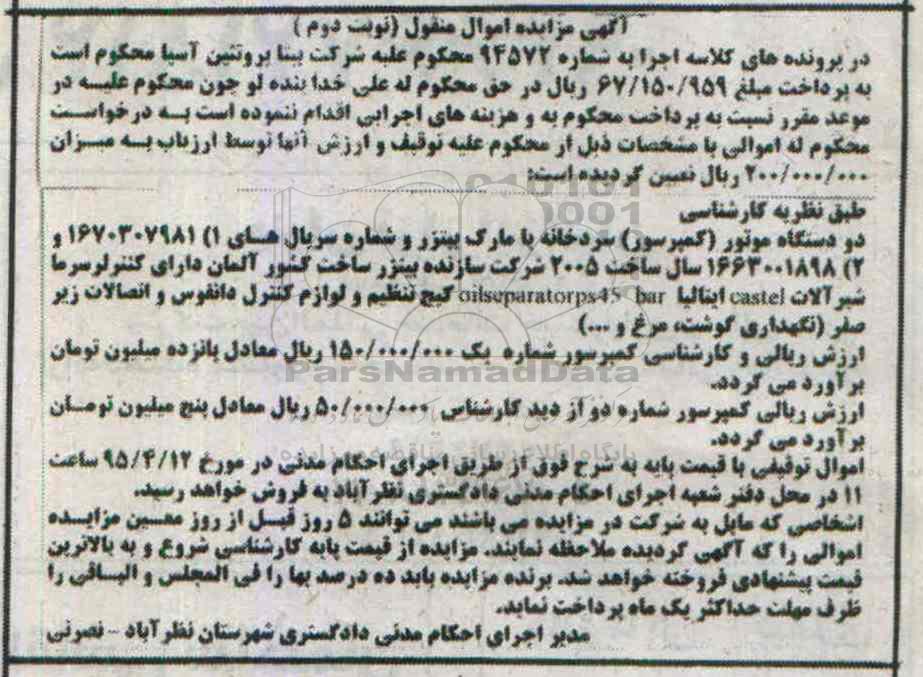 آگهی مزایده اموال منقول (نوبت دوم )
در پرونده های کلاسه اجرا به شماره ۹۴۵۷۲ محکوم علیه شرکت بینا پروتئین آسیا محکوم است
به پرداخت مبلغ ۶۷/۱۵۰/۹۵۹ ریال در حق محکوم له علی خدا بنده لو چون محکوم علیـه در
موعد مقرر نسبت به پرداخت محکوم به و هزینه های اجرایی اقدام ننموده است به درخواست
محکوم له اموالی با مشخصات ذیل از محکوم علیه توقیف و ارزش آنها توسط ارزیاب به میزان
۲۰۰/۰۰۰/۰۰۰ ریال تعیین گردیده است:
طبق نظریه کارشناسی
دو دستگاه موتور (کمپرسور) سردخانه با مارک بیتزر و شماره سریال های ۱) ۱۶۷۰۳۰۷۹۸۱ و
۲) ۱۶۶۳۰۰۱۸۹۸ سال ساخت ۲۰۰۵ شرکت سازنده بیتزر ساخت کشور آلمان دارای کنترلرسرما
شیرآلات castel ایتالیا oilseparatorps45 bar گیج تنظیم و لوازم کنترل دانفوس و اتصالات زیر
صفر (نگهداری گوشت، مرغ و ...)
ارزش ریالی و کارشناسی کمپرسور شماره یک ۱۵۰/۰۰۰/۰۰۰ ریال معادل پانزده میلیون تومان
برآورد می گردد.
ارزش ریالی کمپرسور شماره دو از دید کارشناس ۵۰/۰۰۰/۰۰۰ ریال معادل پنج میلیون تومـان
برآورد می گردد.
اموال توقیفی با قیمت پایه به شرح فوق از طریق اجرای احکام مدنی در مورخ ۹۵/۴/۱۲ ساعت
۱۱ در محل دفتر شعبه اجرای احکام مدنی دادگستری نظرآباد به فروش خواهد رسید.
اشخاصی که مایل به شرکت در مزایده می باشند می توانند ۵ روز قبـل از روز معـین مزایـده
اموالی را که آگهی گردیده ملاحظه نمایند. مزایده از قیمت پایه کارشناسی شروع و به بالاترین
قیمت پیشنهادی فروخته خواهد شد. برنده مزایده باید ده درصد بها را فی المجلس و الباقی را
ظرف مهلت حداکثر یک ماه پرداخت نماید.
مدیر اجرای احکام مدنی دادگستری شهرستان نظرآباد - نصرتی
ParsNamadData